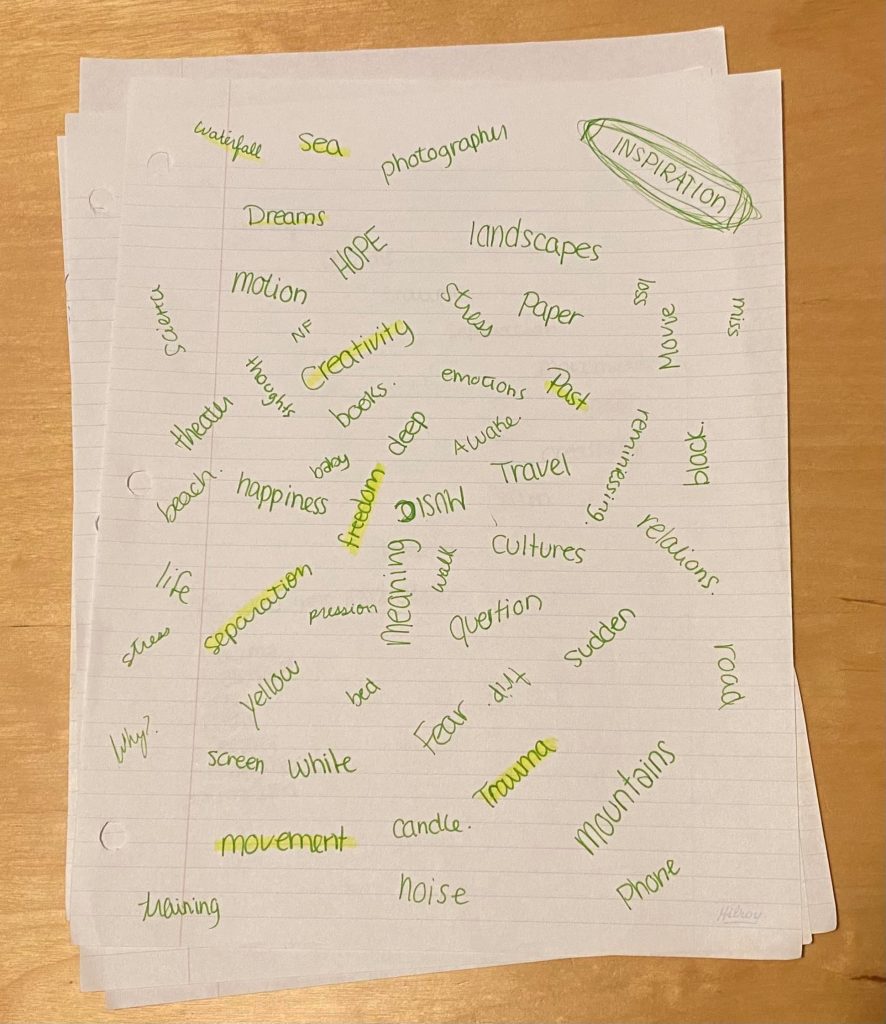 waterfall
sea
photography
INSPIRATION
Dreams
HOPE
landscapes
motion
stress
Paper
loss
Movie
miss
Science
NF
Creativity
thoughts
books.
emotions
Past
theater
deep
Awake.
reminessing.
black.
beach.
happiness
baby
freedom
MUSIC
Travel
cultures
relations.
life
separation
pression
Meaning
walk
Question
Sudden
stress
yellow
bed
Fear
road
Why?
screen
white
Trauma
mountains
movement
candle.
training
noise
Phone
Hilroy